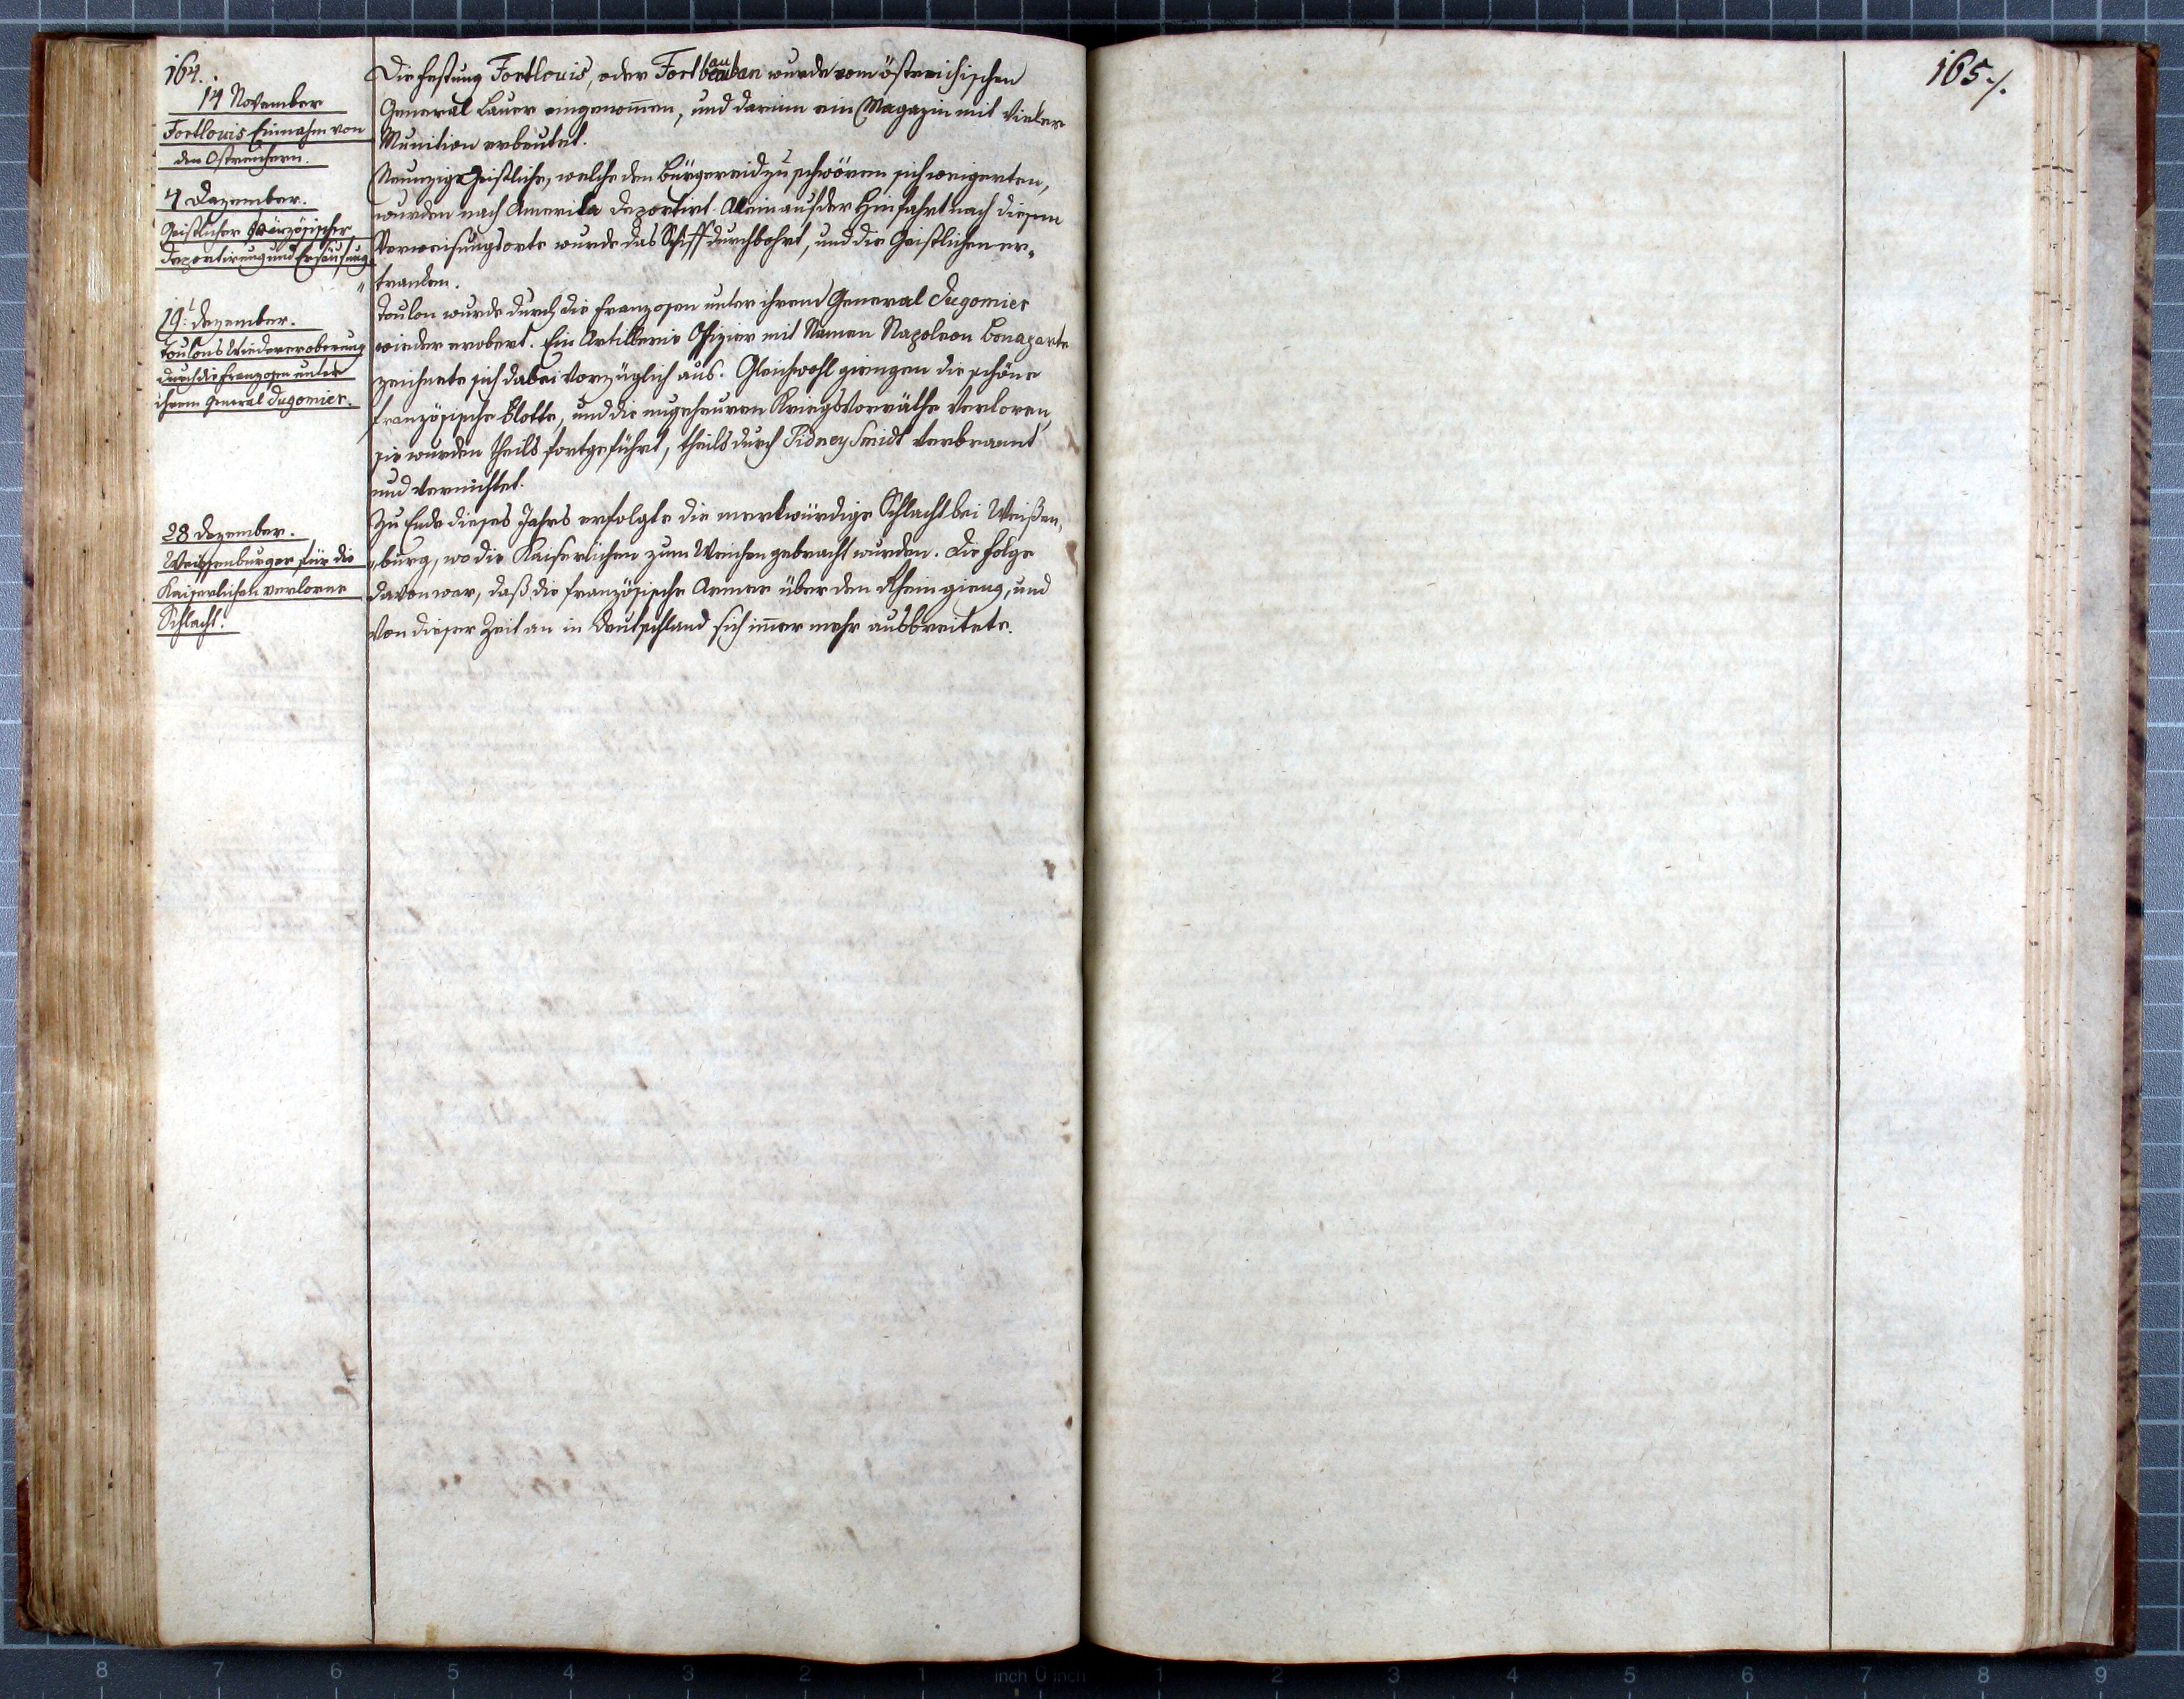 164.
14 November
Fortlouis Einnahm von
den Östreichern.
Die Festung Fortlouis, oder Fort vauban wurde vom östreichischen
General Lauer eingenom̅en, und darinn ein Magazin mit vieler
Munition erbeutet.
4 Dezember.
Geistlicher französischer
Deportirung und Ersäufung.
Neunzig Geistliche, welche den Bürgereid zu schwören sich weigerten,
wurden nach Amerika deportirt. Allein auf der Hinfahrt nach diesem
Verweisungsorte wurde das Schiff durchbohrt, und die Geistlichen er„
„tranken.
19t Dezember.
Toulons Wiedereroberung
durch die Franzosen unter
ihrem General Dugomier.
Toulon wurde durch die Franzosen unter ihrem General Dugomier
wieder erobert. Ein Artillerie Offizier mit Namen Napoleon Bonaparte
zeichnete sich dabei vorzüglich aus. Gleichwohl giengen die schöne
französische Flotte, und die ungeheuren Kriegsvorräthe verloren,
sie wurden theils fortgeführt, theils durch Sidney Smidt verbrannt
und vernichtet.
28 Dezember.
Weissenburger für die
Kaiserlichen verlorne
Schlacht.
Zu Ende dieses Jahrs erfolgte die merkwürdige Schlacht bei Weißen„
„burg, wo die Kaiserlichen zum Weichen gebracht wurden. Die Folge
davon war, daß die französische Armee über den Rhein gieng, und
von dieser Zeit an in Deutschland sich im̅er mehr ausbreitete.
165./.
8 7 6 5 4 3 2 1 inch 0 inch 1 2 3 4 5 6 7 8 9